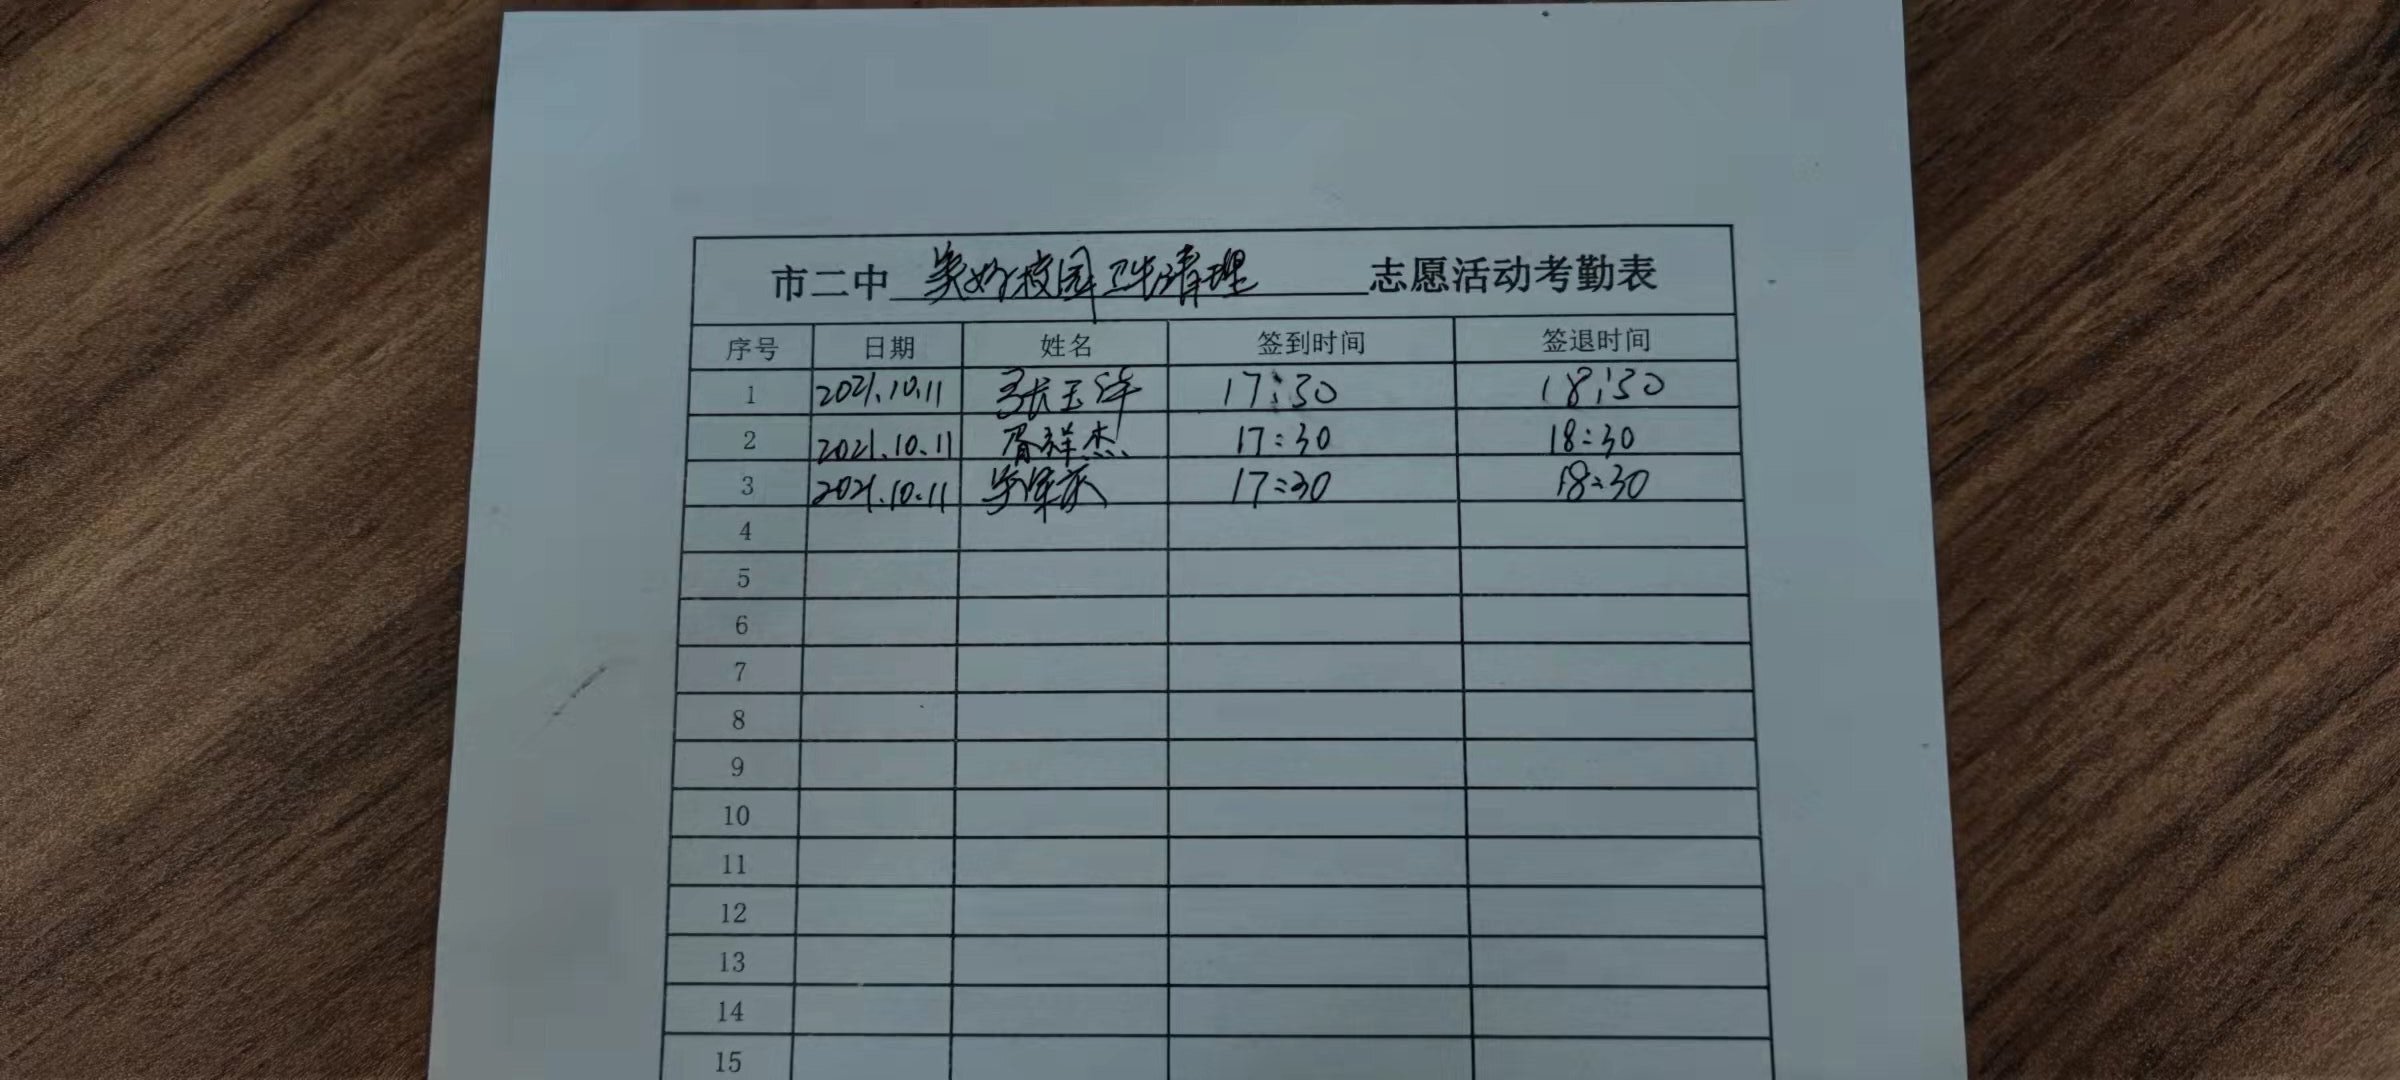 市二中 美好校园卫生清理 志愿活动考勤表
序号 日期 姓名 签到时间 签退时间
1 2021.10.11 张玉洋 17:30 18:30
2 2021.10.11 胥祥杰 17:30 18:30
3 2021.10.11 17:30 18:30
4
5
6
7
8
9
10
11
12
13
14
15